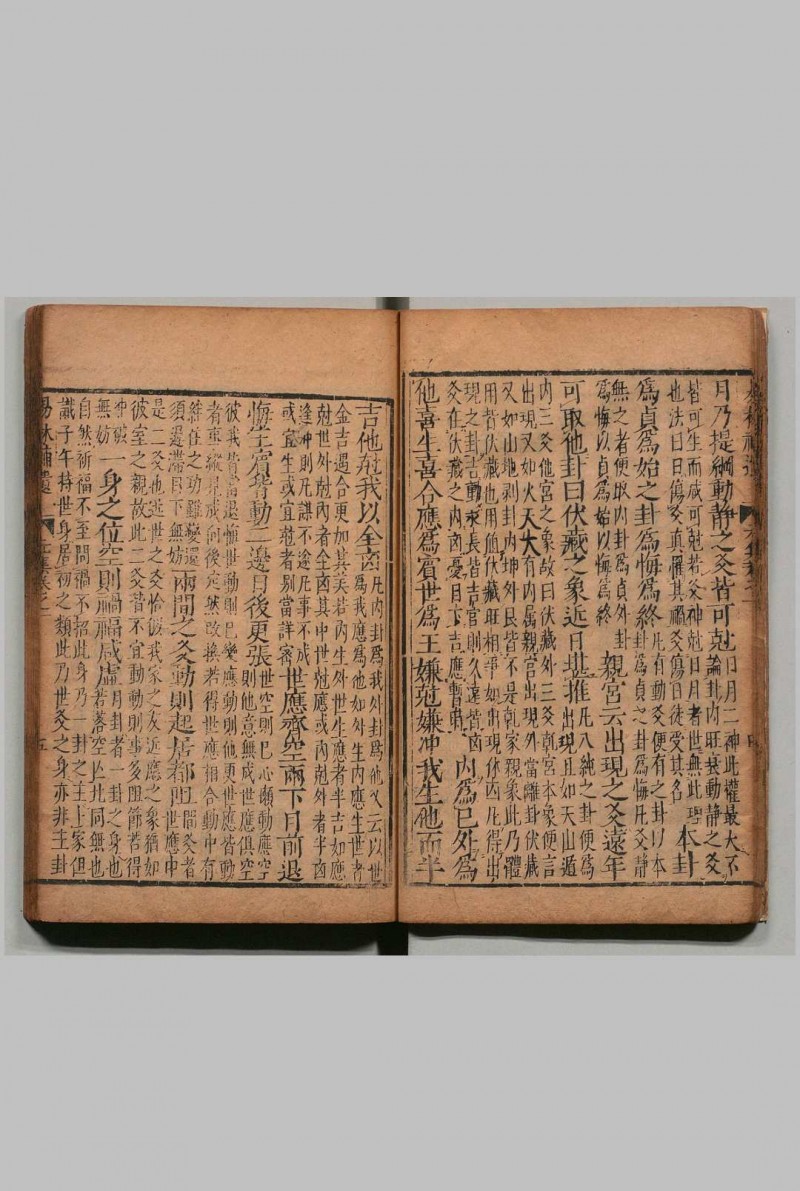 月乃提綱動靜之爻皆可尅日月二神此權最大不
論卦內旺衰動靜之爻
皆可生而咸可尅若爻神尅日月者世無此理
也法曰日傷爻真罹其禍爻傷日徒受其名本卦
為貞為始之卦為悔為終凡有動爻便有之卦以本
卦為貞之卦為悔凡爻靜
無之者便取內卦為貞外卦
為悔以貞為始以悔為終親宮云出現之爻遠年
可取他卦曰伏藏之象近日堪推凡八純之卦便為
出現且如天山遁
內三爻他宮之象故曰伏藏外三爻乾宮本象便言
出現又如火天大有內属親宮出現外當離卦伏藏
又如山地剥卦內坤外艮皆不是乾家親象此乃體
用皆伏藏也用值伏藏旺相爭如出現休囚凡得出
現之卦吉動永長皆吉官則久遠皆凶
爻在伏藏之內凶憂目下吉應暫時內為已外為
他喜生喜合應為賓世為主嫌尅嫌冲我生他而半
吉他尅我以全凶凡內卦為我外卦為他又云以世
為我應為他如外生內應生世者
金吉遇合更加其美若內生外世生應者半吉如應
尅世外尅內者全凶其中世尅應或內尅外者半凶
逢冲則凡謀不遂凡事不成
或宜生或宜尅者别當詳審世應齊空兩下目前退
悔主賓皆動二邊日後更張世空則已心頗動應空
則他意無成世應俱空
彼我皆當退悔世動則已變應動則他更世應皆動
者縱見成何後定然改換若得世應相合動中有
絆住之功雖變還
須遲滯目下無妨兩間之爻動則起居都阻間爻者
世應中
是二爻也近世之爻恰似我家之友近應之象猶如
彼室之親故此二爻皆不宜動動則事多阻節若得
冲破一
無妨一身之位空則禍福咸虚月卦者一卦之身也
若落空亡此同無也
自然祈福不至問禍不招此身乃一卦之主卜家但
識子午持世身居初之類此乃世爻之身亦非主卦
易林補遺
五